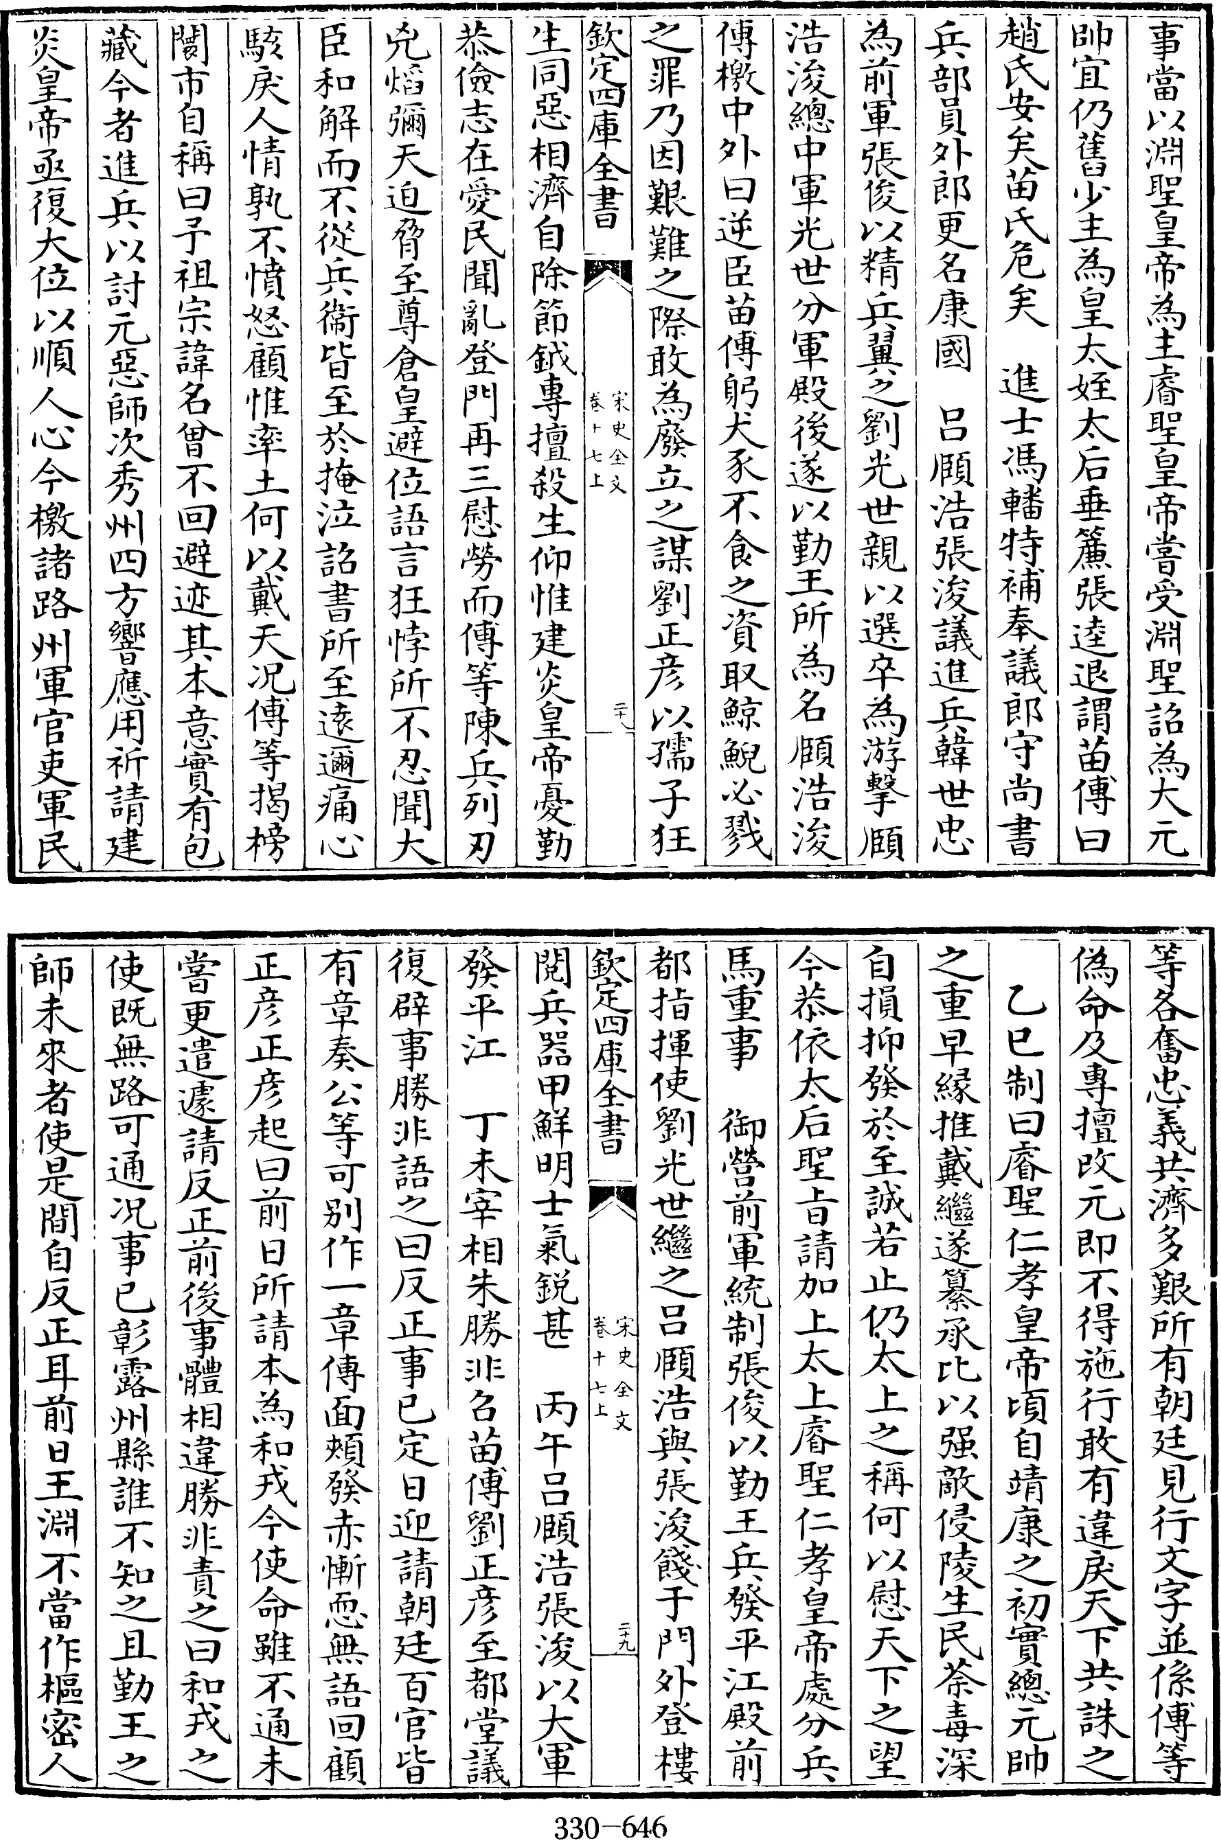 事當以淵聖皇帝為主睿聖皇帝嘗受淵聖詔為大元
帥宜仍舊少主為皇太姪太后垂簾張逵退謂苗傅曰
趙氏安矣苗氏危矣　進士馮轓特補奉議郎守尚書
兵部員外郎更名康國　吕頤浩張浚議進兵韓世忠
為前軍張俊以精兵翼之劉光世親以選卒為游擊頤
浩浚總中軍光世分軍殿後遂以勤王所為名頤浩浚
傳檄中外曰逆臣苗傅躬犬豕不食之資取鯨鯢必戮
之罪乃因艱難之際敢為廢立之謀劉正彦以孺子狂
欽定四庫全書
宋史全文
卷十七上
二十八
生同惡相濟自除節鉞專擅殺生仰惟建炎皇帝憂勤
恭儉志在愛民聞亂登門再三慰勞而傅等陳兵列刃
兇熖彌天迫脅至尊倉皇避位語言狂悖所不忍聞大
臣和解而不從兵衛皆至於掩泣詔書所至遠邇痛心
駭戾人情孰不憤怒顧惟率土何以戴天况傅等揭榜
闤市自稱曰予祖宗諱名曾不回避迹其本意實有包
藏今者進兵以討元惡師次秀州四方響應用祈請建
炎皇帝亟復大位以順人心今檄諸路州軍官吏軍民
等各奮忠義共濟多艱所有朝廷見行文字並係傅等
偽命及專擅改元即不得施行敢有違戾天下共誅之
乙巳制曰睿聖仁孝皇帝頃自靖康之初實總元帥
之重早縁推戴繼遂纂承比以强敵侵陵生民荼毒深
自損抑發於至誠若止仍太上之稱何以慰天下之望
今恭依太后聖旨請加上太上睿聖仁孝皇帝處分兵
馬重事　御營前軍統制張俊以勤王兵發平江殿前
都指揮使劉光世繼之吕頤浩與張浚餞于門外登樓
欽定四庫全書
宋史全文
卷十七上
二十九
閲兵器甲鮮明士氣銳甚　丙午吕頤浩張浚以大軍
發平江　丁未宰相朱勝非召苗傅劉正彦至都堂議
復辟事勝非語之曰反正事已定日迎請朝廷百官皆
有章奏公等可别作一章傅面頰發赤慚恧無語回顧
正彦正彦起曰前日所請本為和戎今使命雖不通未
當更遣遽請反正前後事體相違勝非責之曰和戎之
使既無路可通况事已彰露州縣誰不知之且勤王之
師未來者使是間自反正耳前日王淵不當作樞密人
330-646